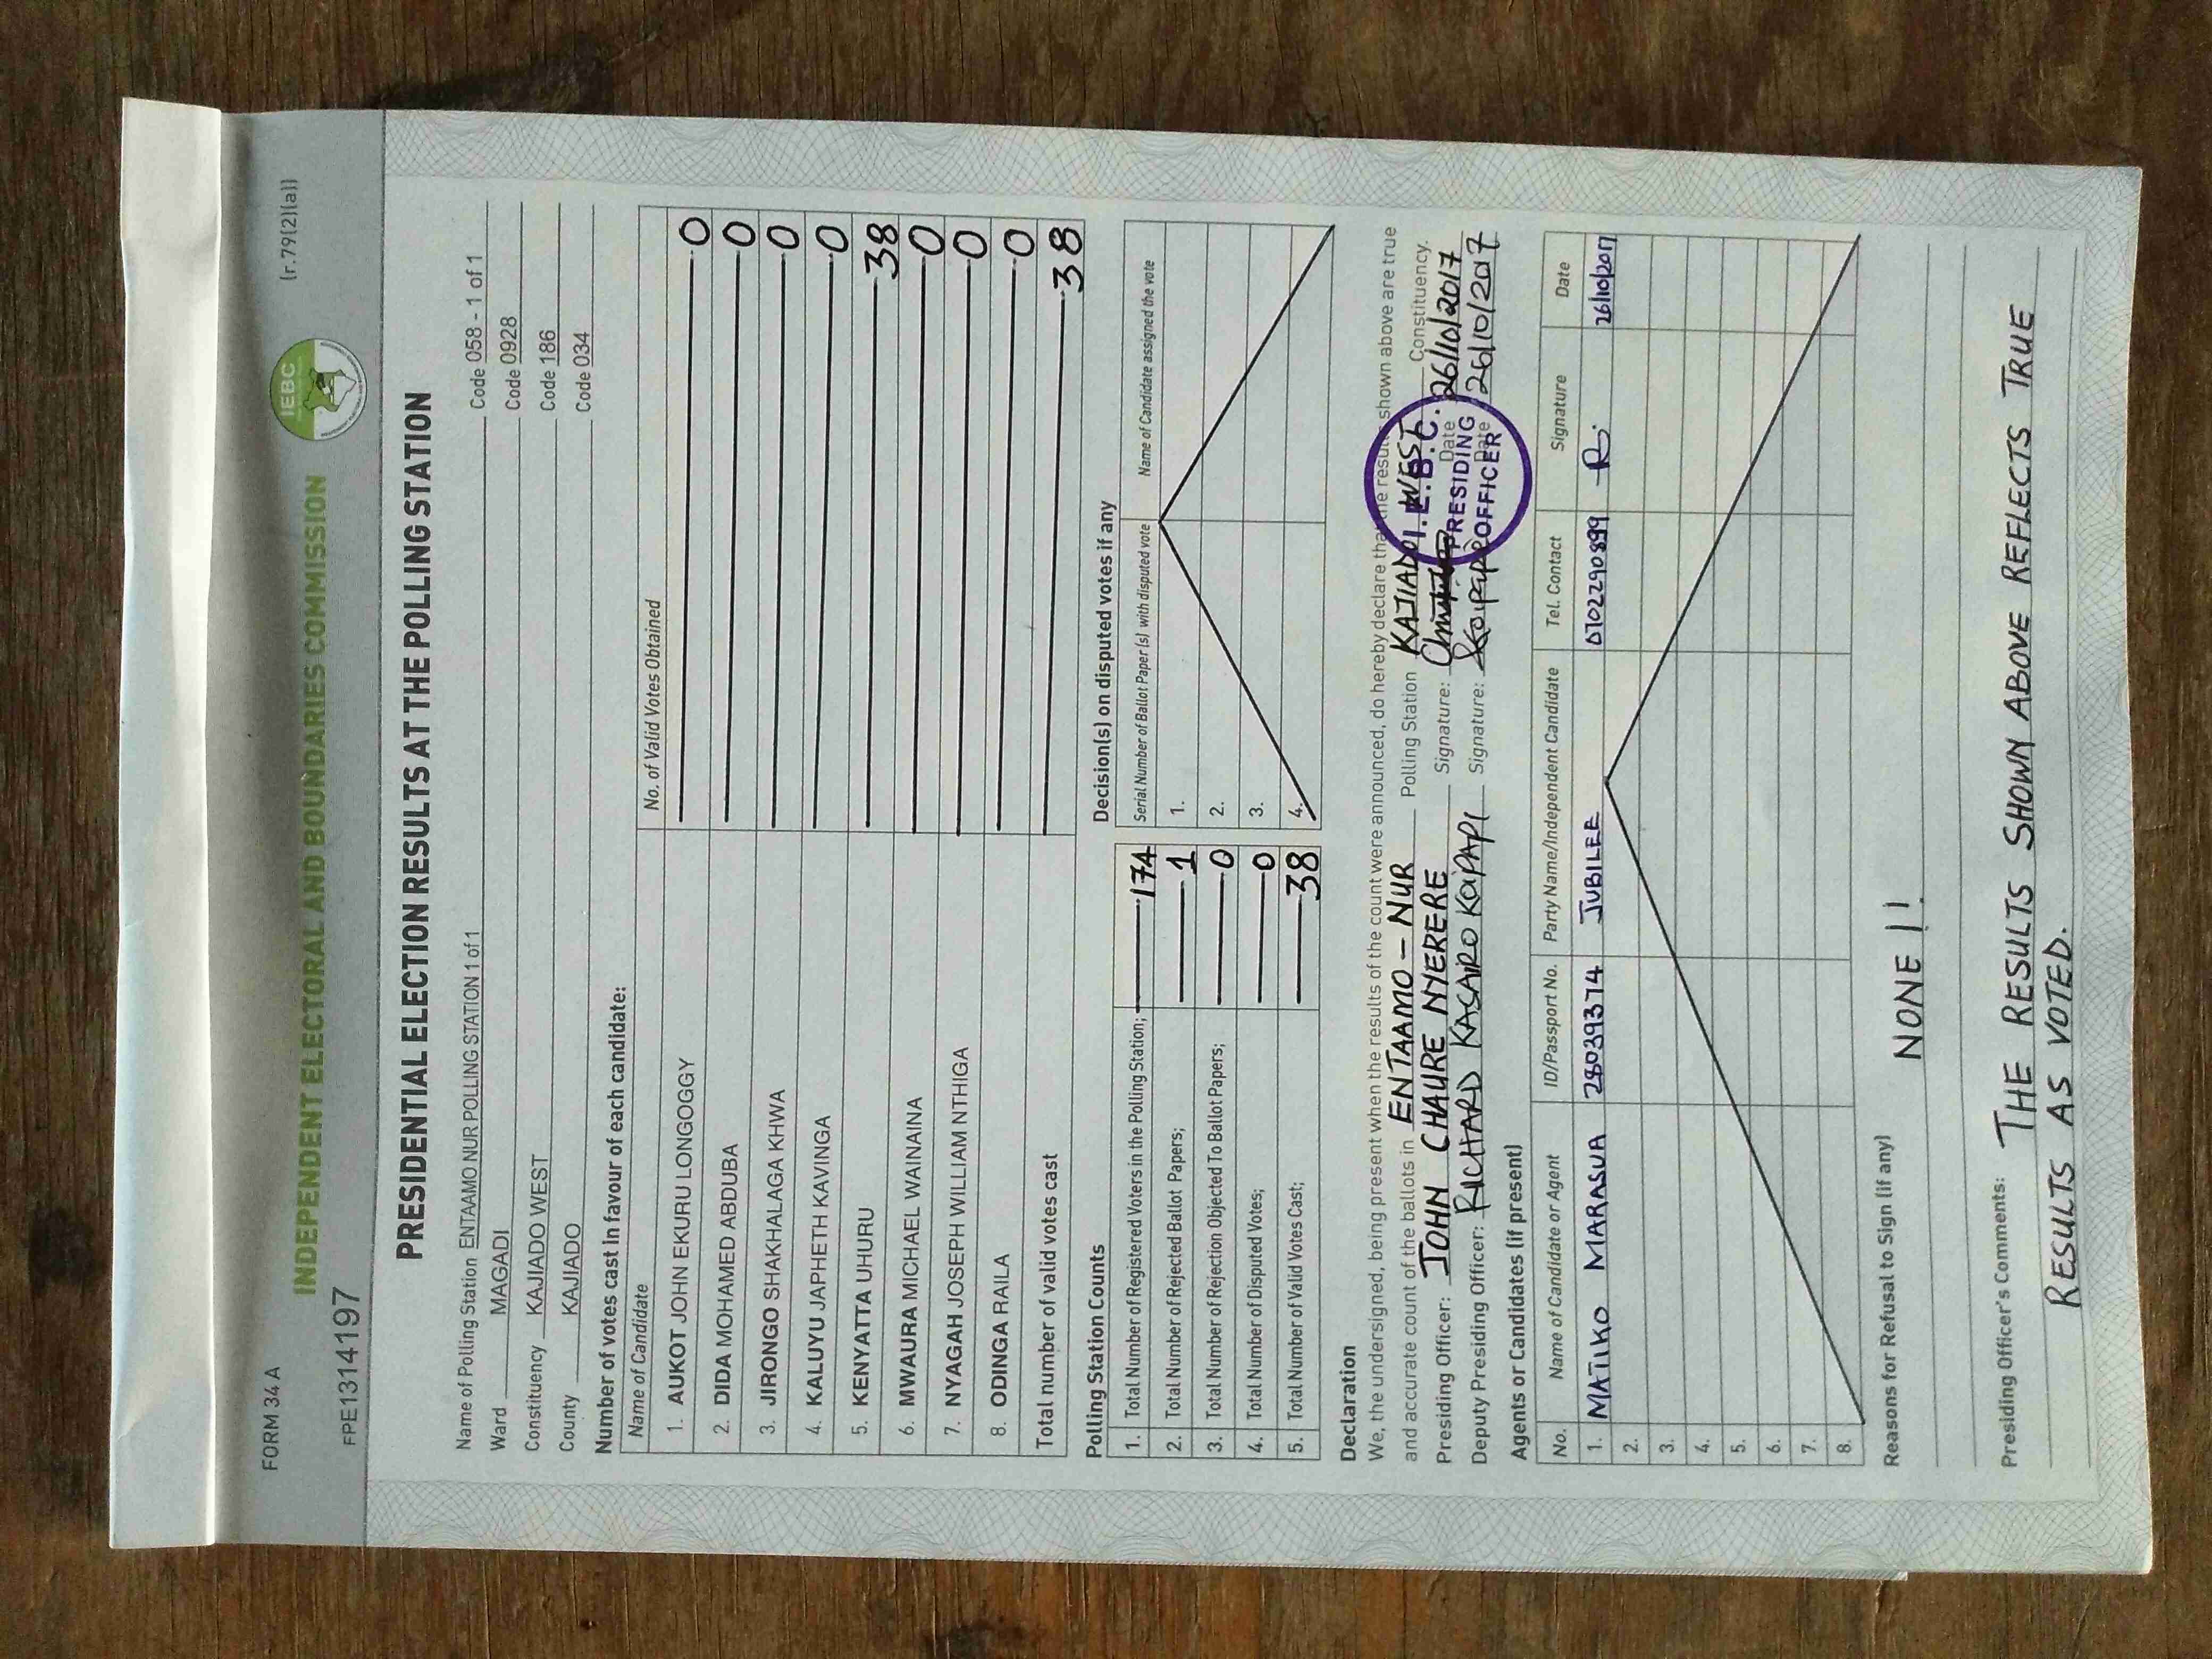 FORM 34 A
(r.79(2)(a))
IEBC
INDEPENDENT ELECTORAL AND BOUNDARIES COMMISSION
FPE1314197
PRESIDENTIAL ELECTION RESULTS AT THE POLLING STATION
Name of Polling Station ENTAMO NUR POLLING STATION 1 of 1 Code 058 - 1 of 1
Ward MAGADI Code 0928
Constituency KAJIADO WEST Code 186
County KAJIADO Code 034
Number of votes cast in favour of each candidate:
Name of Candidate No. of Valid Votes Obtained
1. AUKOT JOHN EKURU LONGOGGY 0
2. DIDA MOHAMED ABDUBA 0
3. JIRONGO SHAKHALAGA KHWA 0
4. KALUYU JAPHETH KAVINGA 0
5. KENYATTA UHURU 38
6. MWAURA MICHAEL WAINAINA 0
7. NYAGAH JOSEPH WILLIAM NTHIGA 0
8. ODINGA RAILA 0
Total number of valid votes cast 38
Polling Station Counts
1. Total Number of Registered Voters in the Polling Station; 174
2. Total Number of Rejected Ballot Papers; 1
3. Total Number of Rejection Objected To Ballot Papers; 0
4. Total Number of Disputed Votes; 0
5. Total Number of Valid Votes Cast; 38
Decision(s) on disputed votes if any
Serial Number of Ballot Paper (s) with disputed vote Name of Candidate assigned the vote
1.
2.
3.
4.
Declaration
We, the undersigned, being present when the results of the count were announced, do hereby declare that the results shown above are true
and accurate count of the ballots in ENTAAMO - NUR Polling Station KAJIADO WEST Constituency.
Presiding Officer: JOHN CHAURE NYERERE Signature: Date 26/10/2017
Deputy Presiding Officer: RICHARD KASAIRO KOIPAPI Signature: Koipapi Date 26/10/2017
I.E.B.C.
PRESIDING
OFFICER
Agents or Candidates (if present)
No. Name of Candidate or Agent ID/Passport No. Party Name/Independent Candidate Tel. Contact Signature Date
1. MATIKO MARASUA 28039374 JUBILEE 0702290899 R. 26/10/2017
2.
3.
4.
5.
6.
7.
8.
Reasons for Refusal to Sign (if any)
NONE !!
Presiding Officer's Comments: THE RESULTS SHOWN ABOVE REFLECTS TRUE
RESULTS AS VOTED.